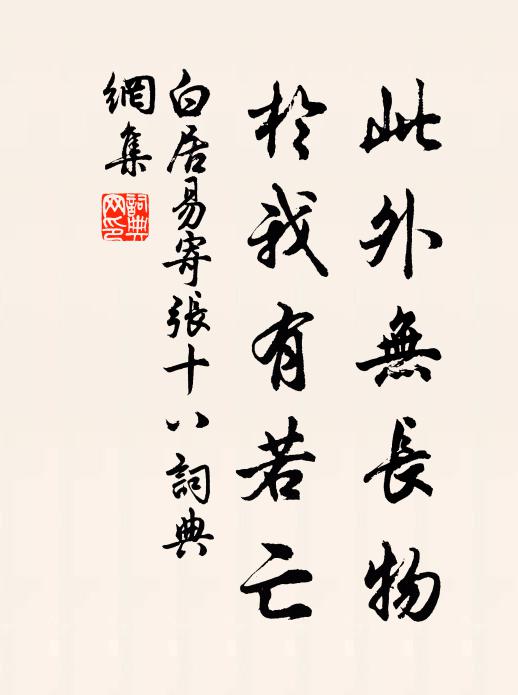 此外無長物
於我有若亡
白居易寄張十八詞典
網集
詞典
网印